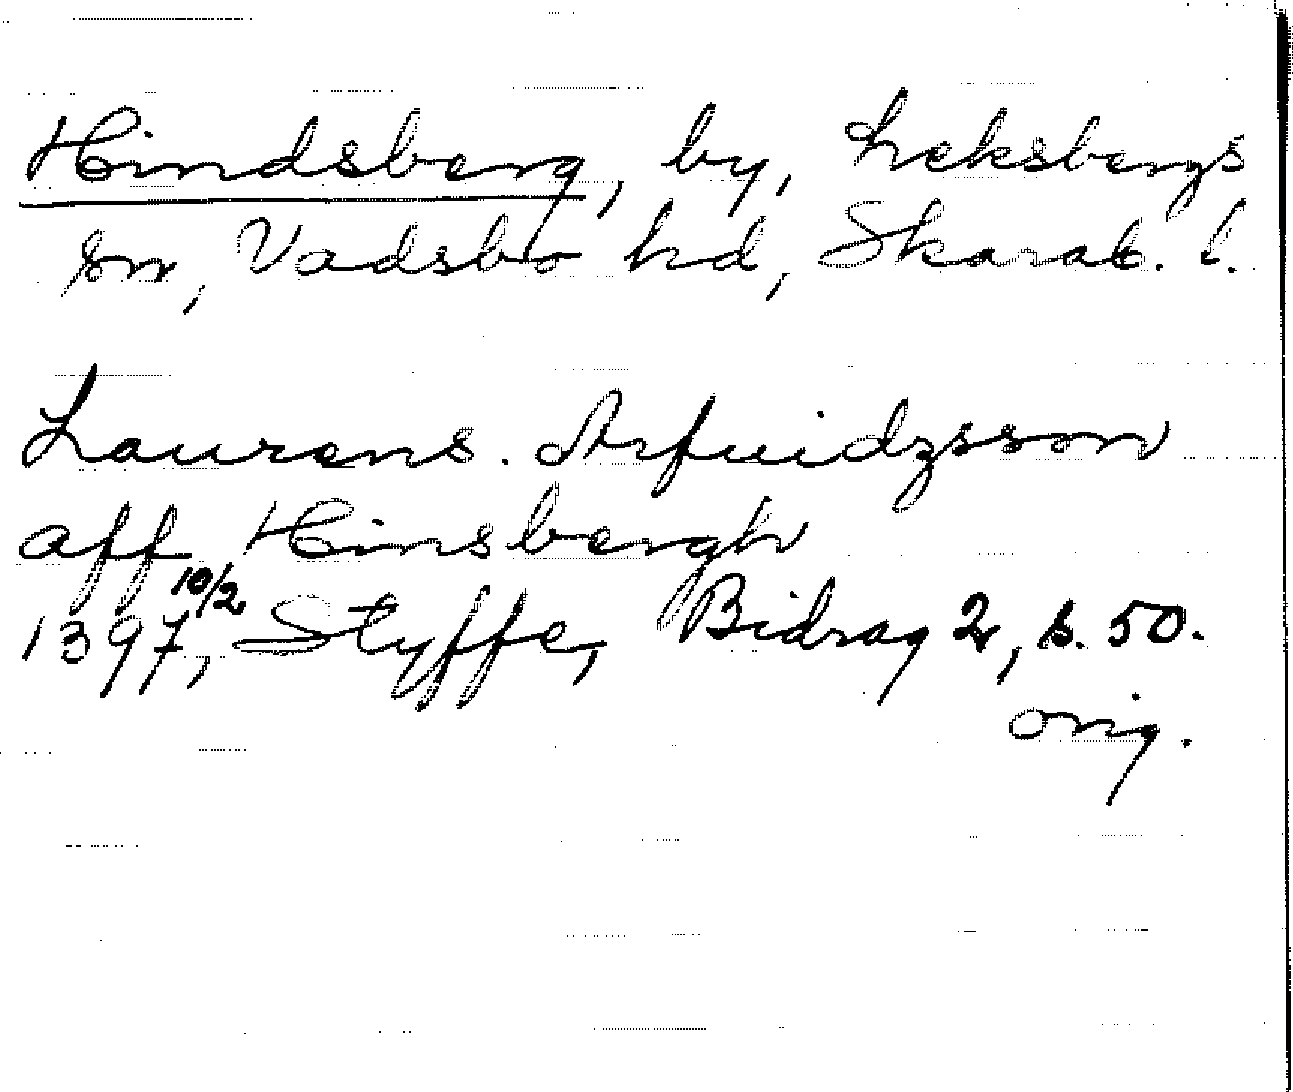 Hindsberg, by, Leksbergs
sn, Vadsbo hd, Skarab. l.
Laurens. Arfuidzsson
aff Hinsbergh
1397 10/2, Styffe, Bidrag 2, s. 50.
orig.